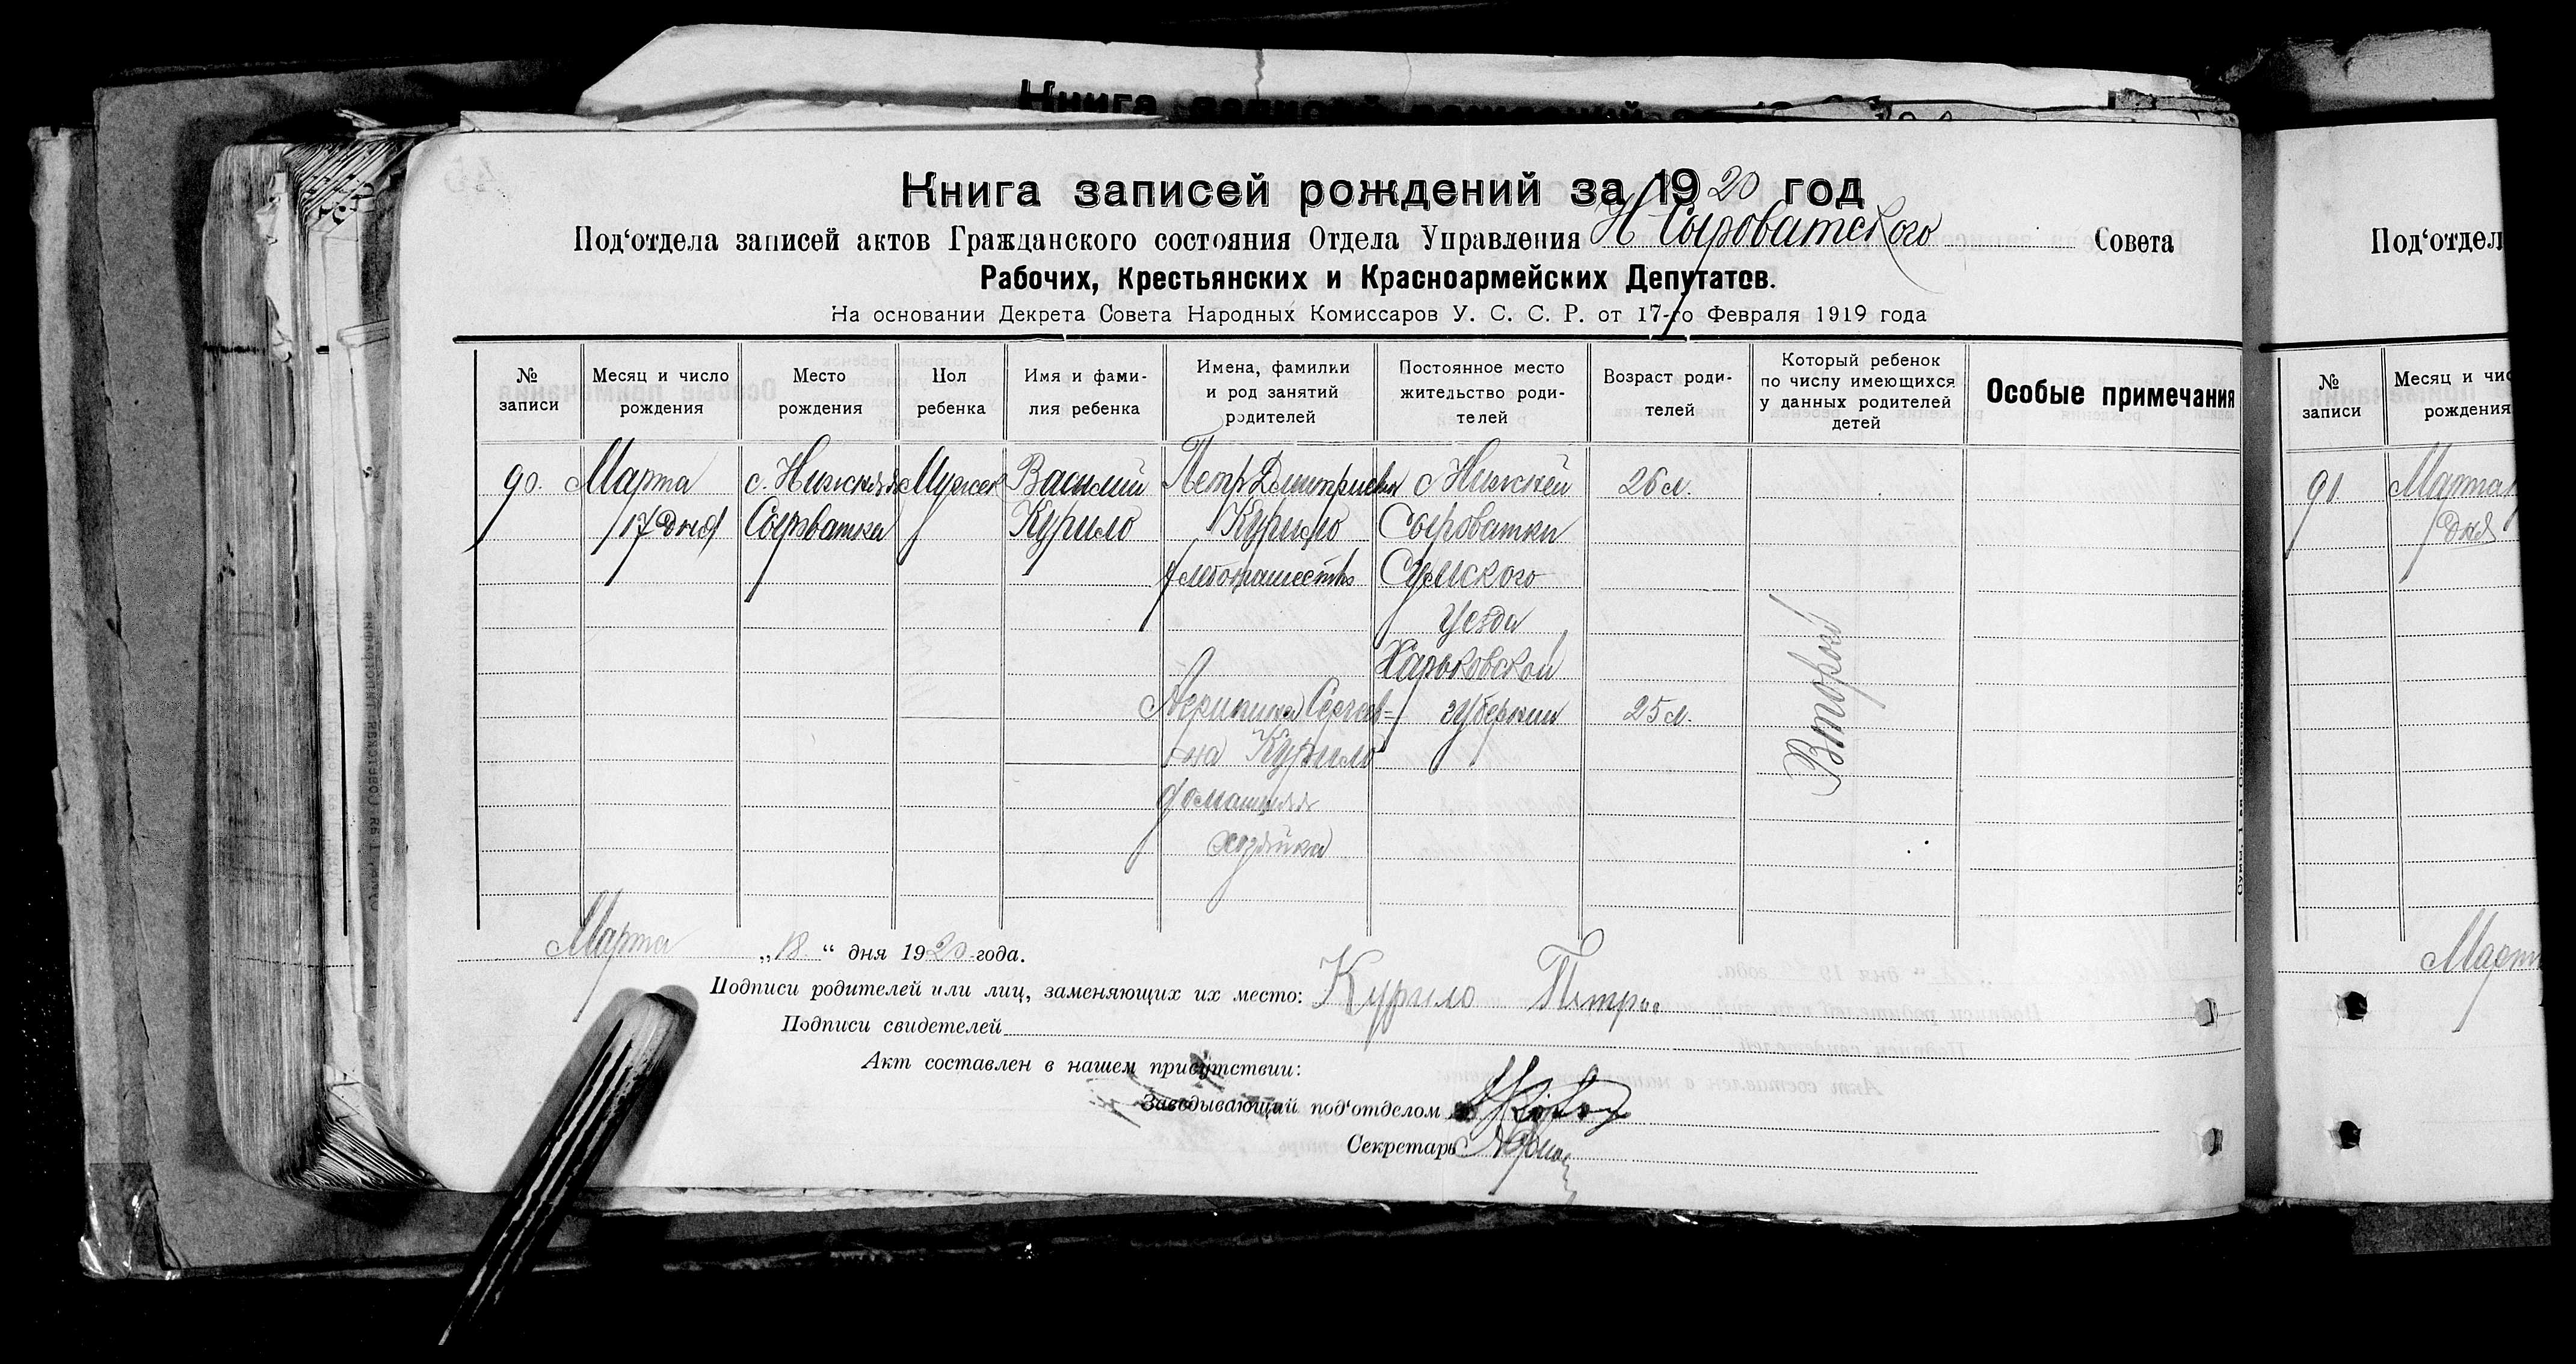 Книга записей рождений за 1920 год
Под‘отдела записей актов Гражданского состояния Отдела Управления Н Сыроватского Совета
Рабочих, Крестьянских и Красноармейских Депутатов.
На основании Декрета Совета Народных Комиссаров У. С. С. Р. от 17-го Февраля 1919 года
№ записи
Месяц и число рождения
Место рождения
Пол ребенка
Имя и фамилия ребенка
Имена, фамилии и род занятий родителей
Постоянное место жительство родителей
Возраст родителей
Который ребенок по числу имеющихся у данных родителей детей
Особые примечания
90.
Марта
17 дня
с. Нижняя
Сыроватка
Мужск
Василий
Курило
Петр Дмитриевич
Курило
хлебопашество
с Нижней
Сыроватки
Сумского
Уезда
Харьковской
губернии
26 л.
Сергеев=
на Курило
домашняя
хозяйка
25 л.
Второй
Марта „18“ дня 1920 года.
Подписи родителей или лиц, заменяющих их место: Курило Петро
Подписи свидетелей
Акт составлен в нашем присутствии:
Заведывающий под‘отделом
Секретарь
Под‘отдел
№ записи
Месяц и чис
рождения
91.
Марта
дня
Март